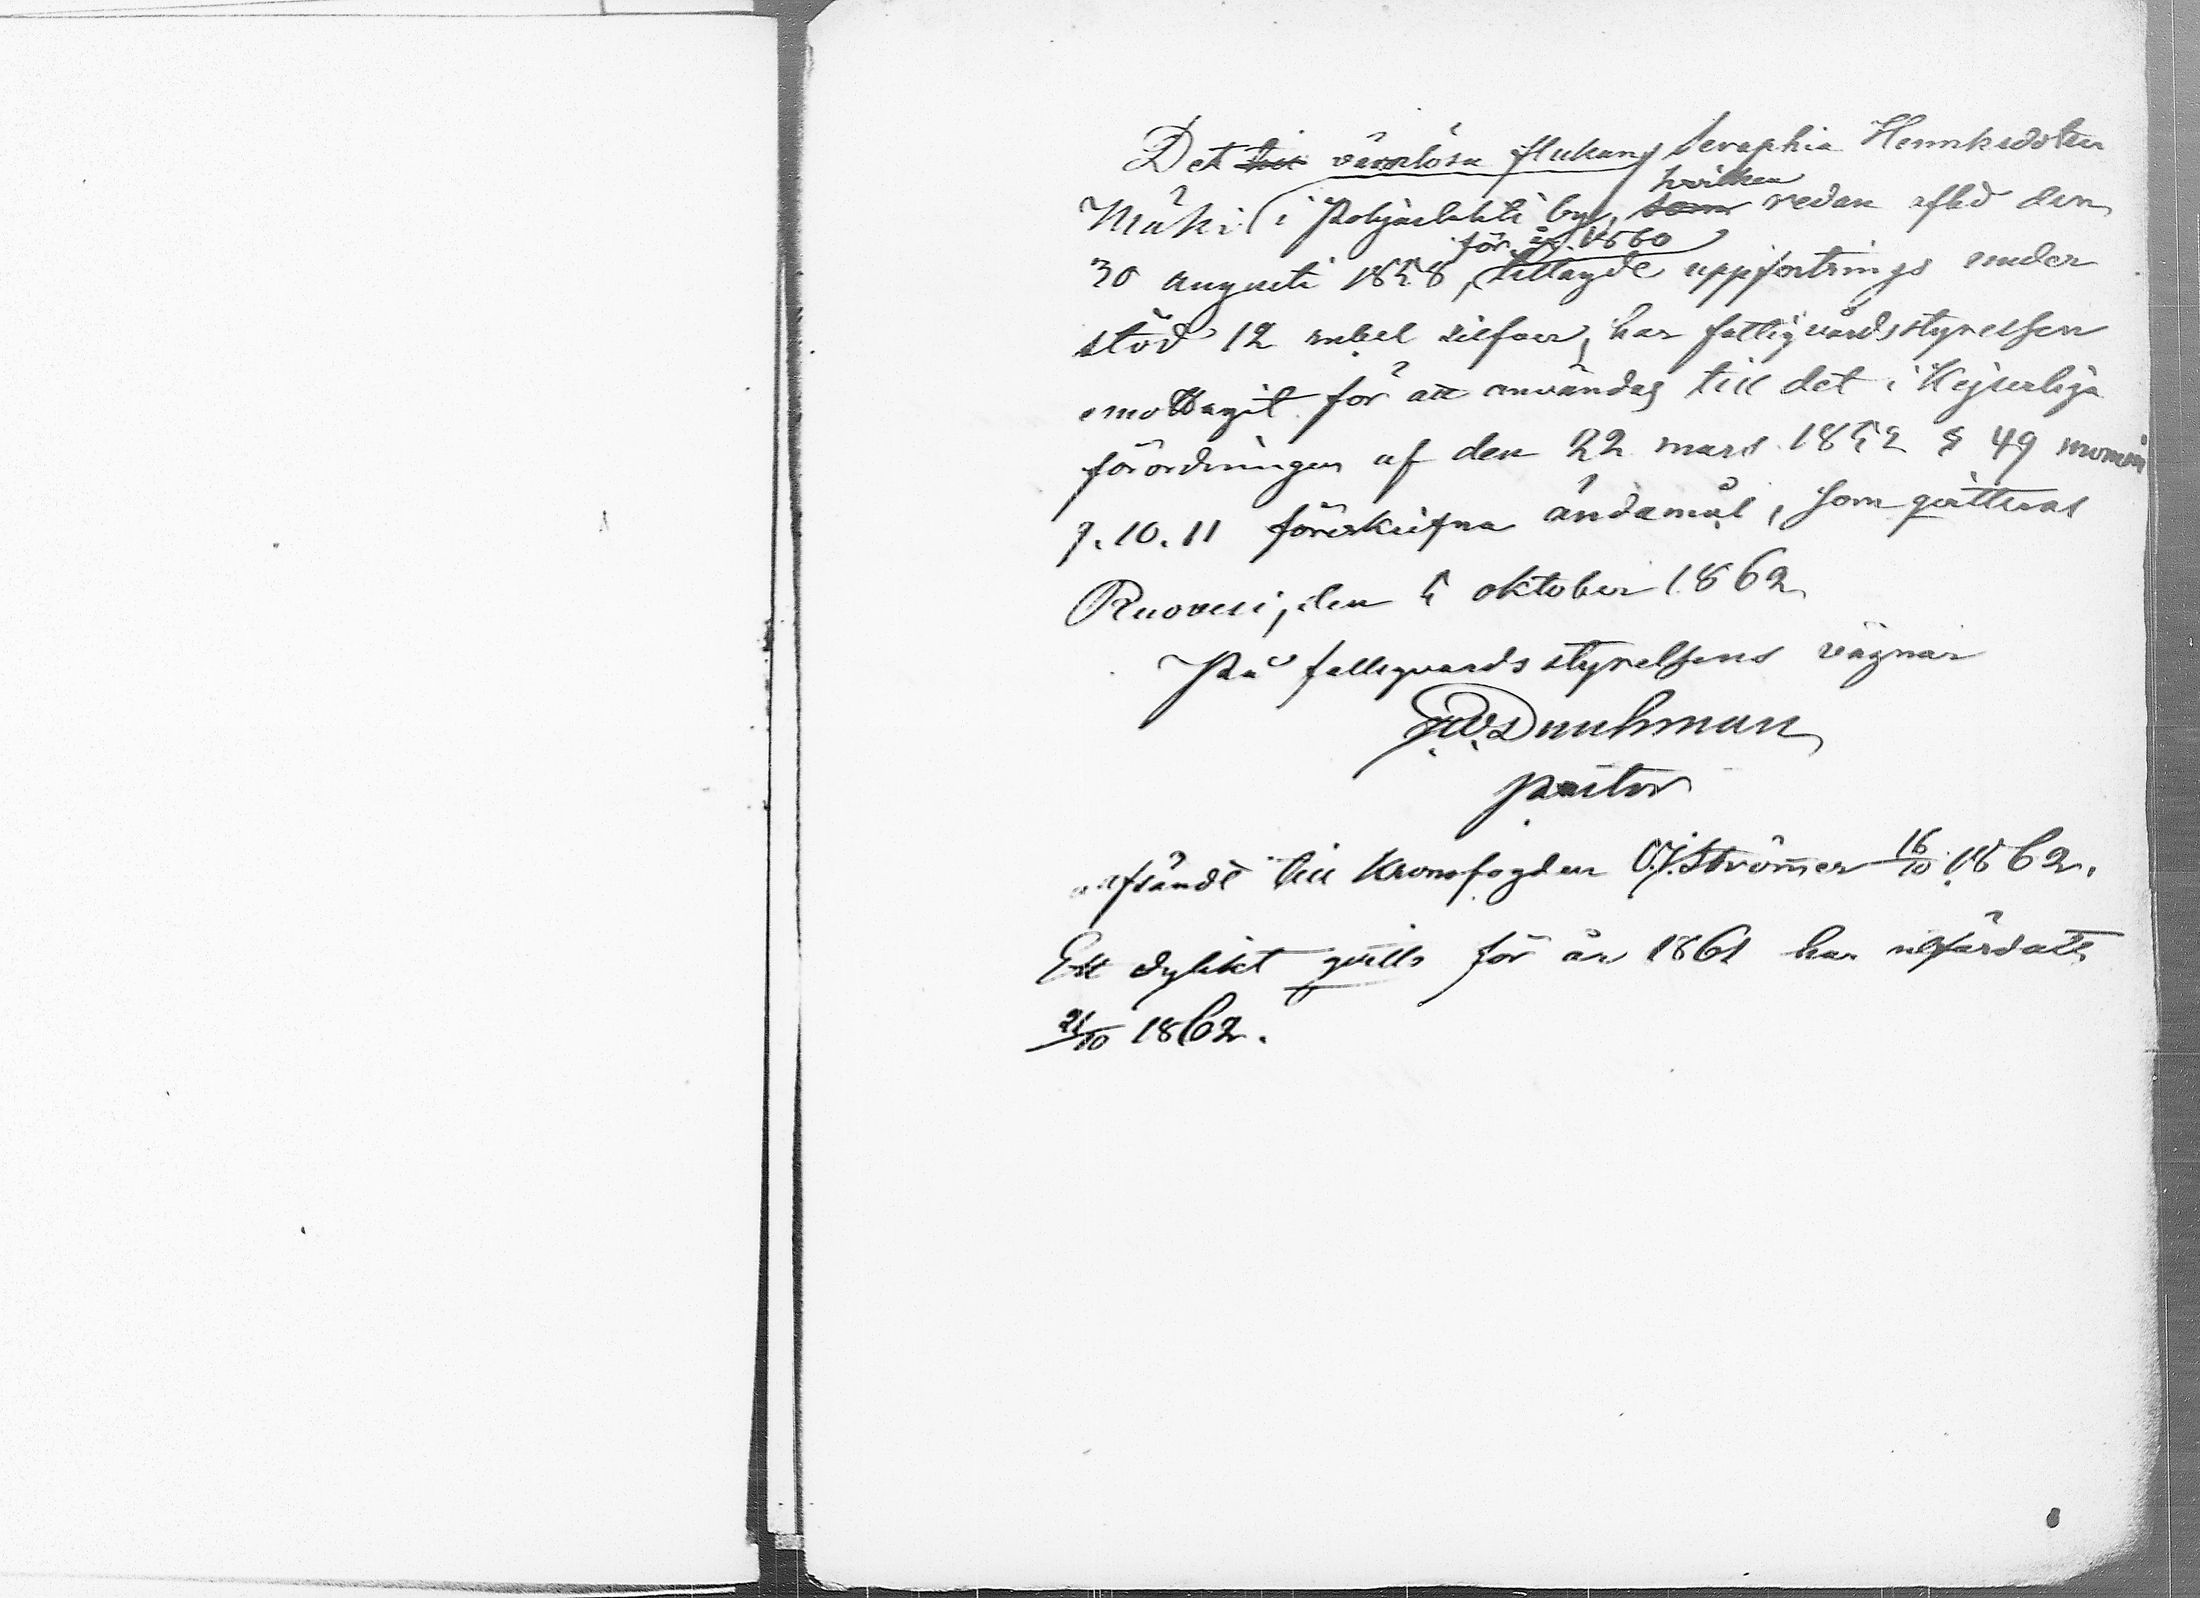 Det till värnlösa flickan Seraphia Henriksdotter
Mäki i Pohjaslahti by, som hvilken redan afled den
30 augusti 1858, för år 1860 tillagde uppfostrings under
stöd 12 rubel silfver, har fattigvårdsstyrelsen
emottagit för att användas till det i Kejserliga
förordningen af den 22 mars 1852 § 49 mom
9. 10. 11 föreskrifna ändamål, som qvitteras
Ruovesi, den 5 oktober 1862
På fattigvårdsstyrelsens vägnar
Durchman
pastor
afsändt till Kronofogden C.J. Strömer 16/10 1862.
Ett dylikt qvitto för år 1861 har utfärdats
21/10 1862.